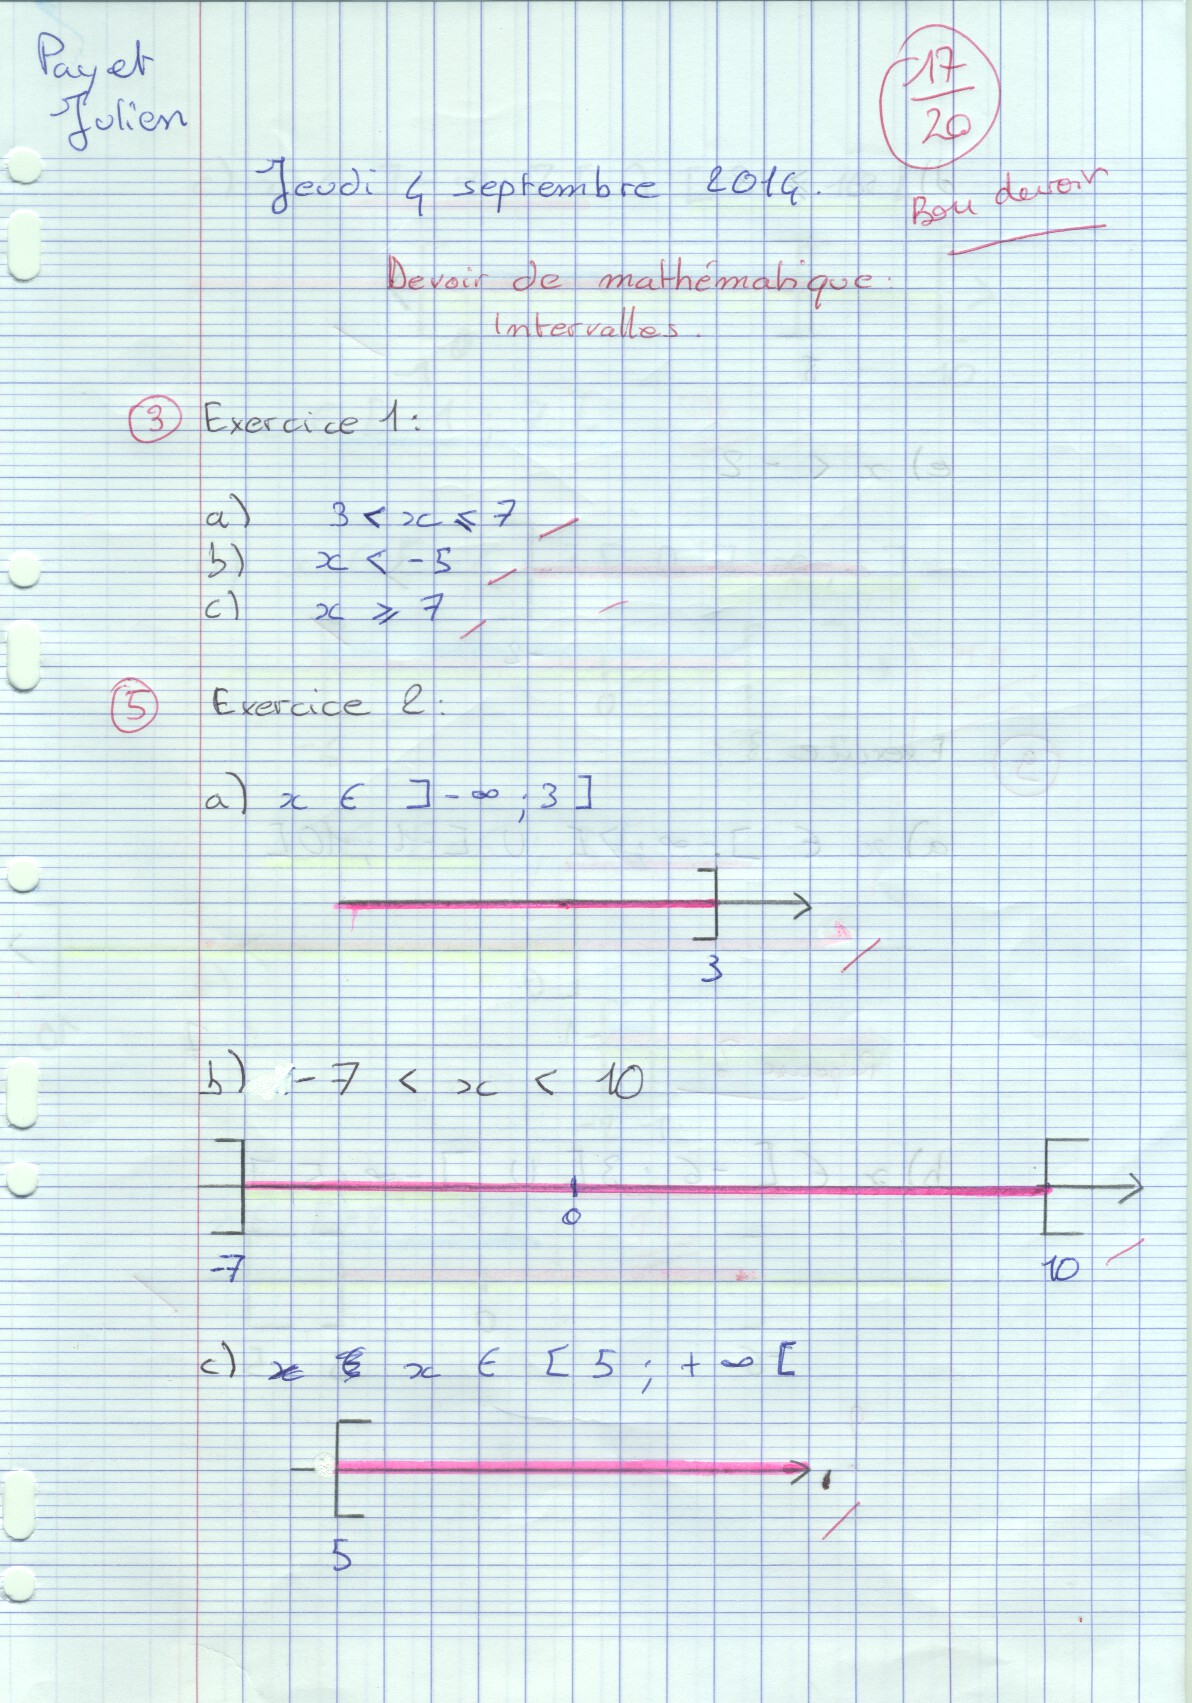 Payet
Julien
17
20
Jeudi 4 septembre 2014.
Bon devoir
Devoir de mathématique.
Intervalles.
3 Exercice 1:
a) 3 < x ⩽ 7
b) x < -5
c) x ⩾ 7
5 Exercice 2:
a) x ∈ ]-∞ ; 3]
3
b) -7 < x < 10
0
-7 10
c) x ∈ [5 ; +∞[
5